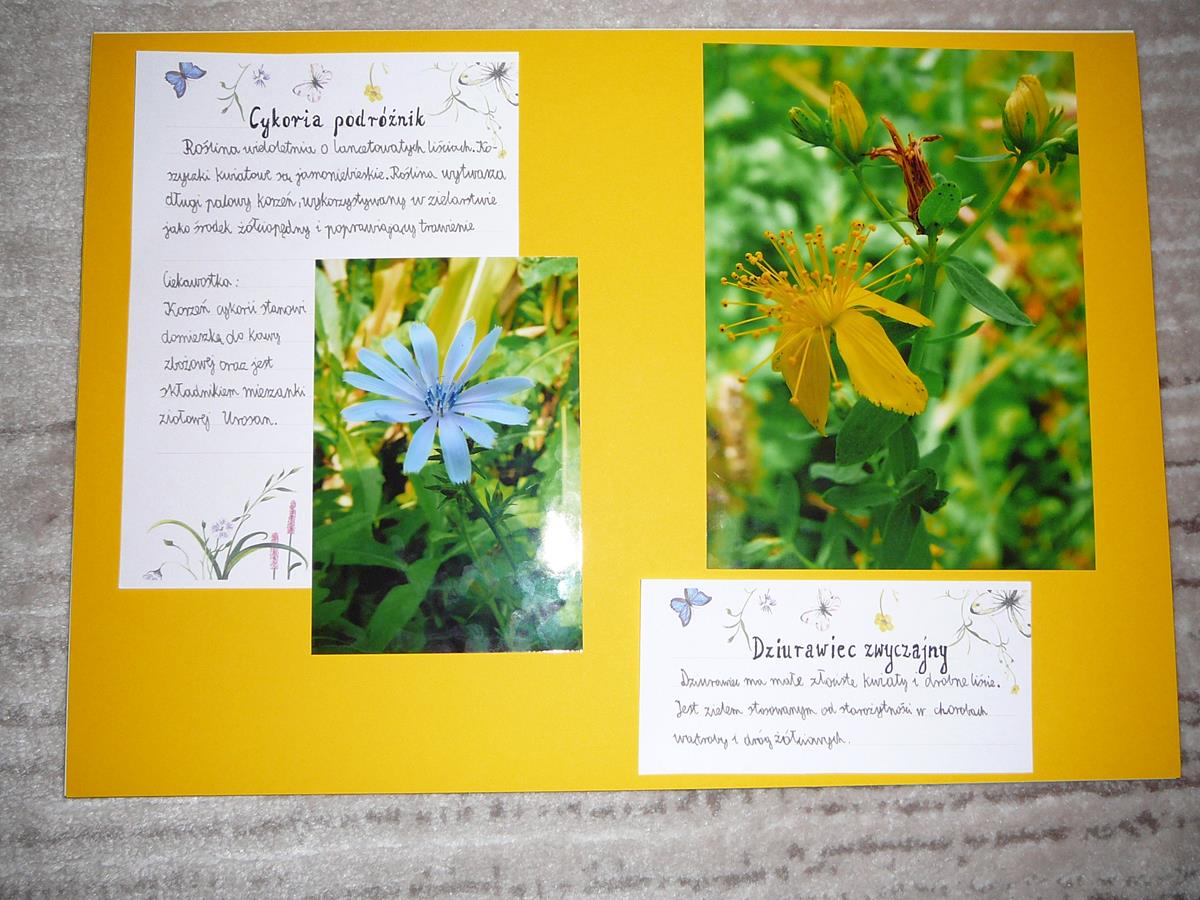 Cykoria podróżnik
Roślina wieloletnia o lancetowatych liściach. Ko-
szyczki kwiatowe są jasnoniebieskie. Roślina wytwarza
długi palowy korzeń, wykorzystywany w zielarstwie
jako środek żółciopędny i poprawiający trawienie
Ciekawostka:
Korzeń cykorii stanowi
domieszkę do kawy
zbożowej oraz jest
składnikiem mieszanki
ziołowej Urosan.
Dziurawiec zwyczajny
Dziurawiec ma małe złociste kwiaty i drobne liście.
Jest zielem stosowanym od starożytności w chorobach
wątroby i dróg żółciowych.